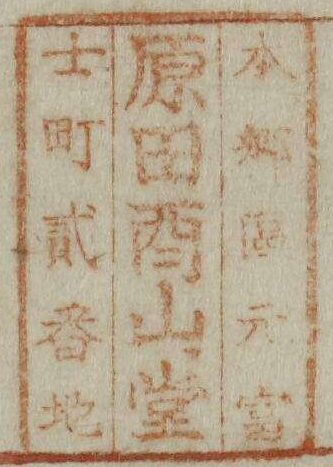 本郷區元富
原田酉山堂
士町貳番地